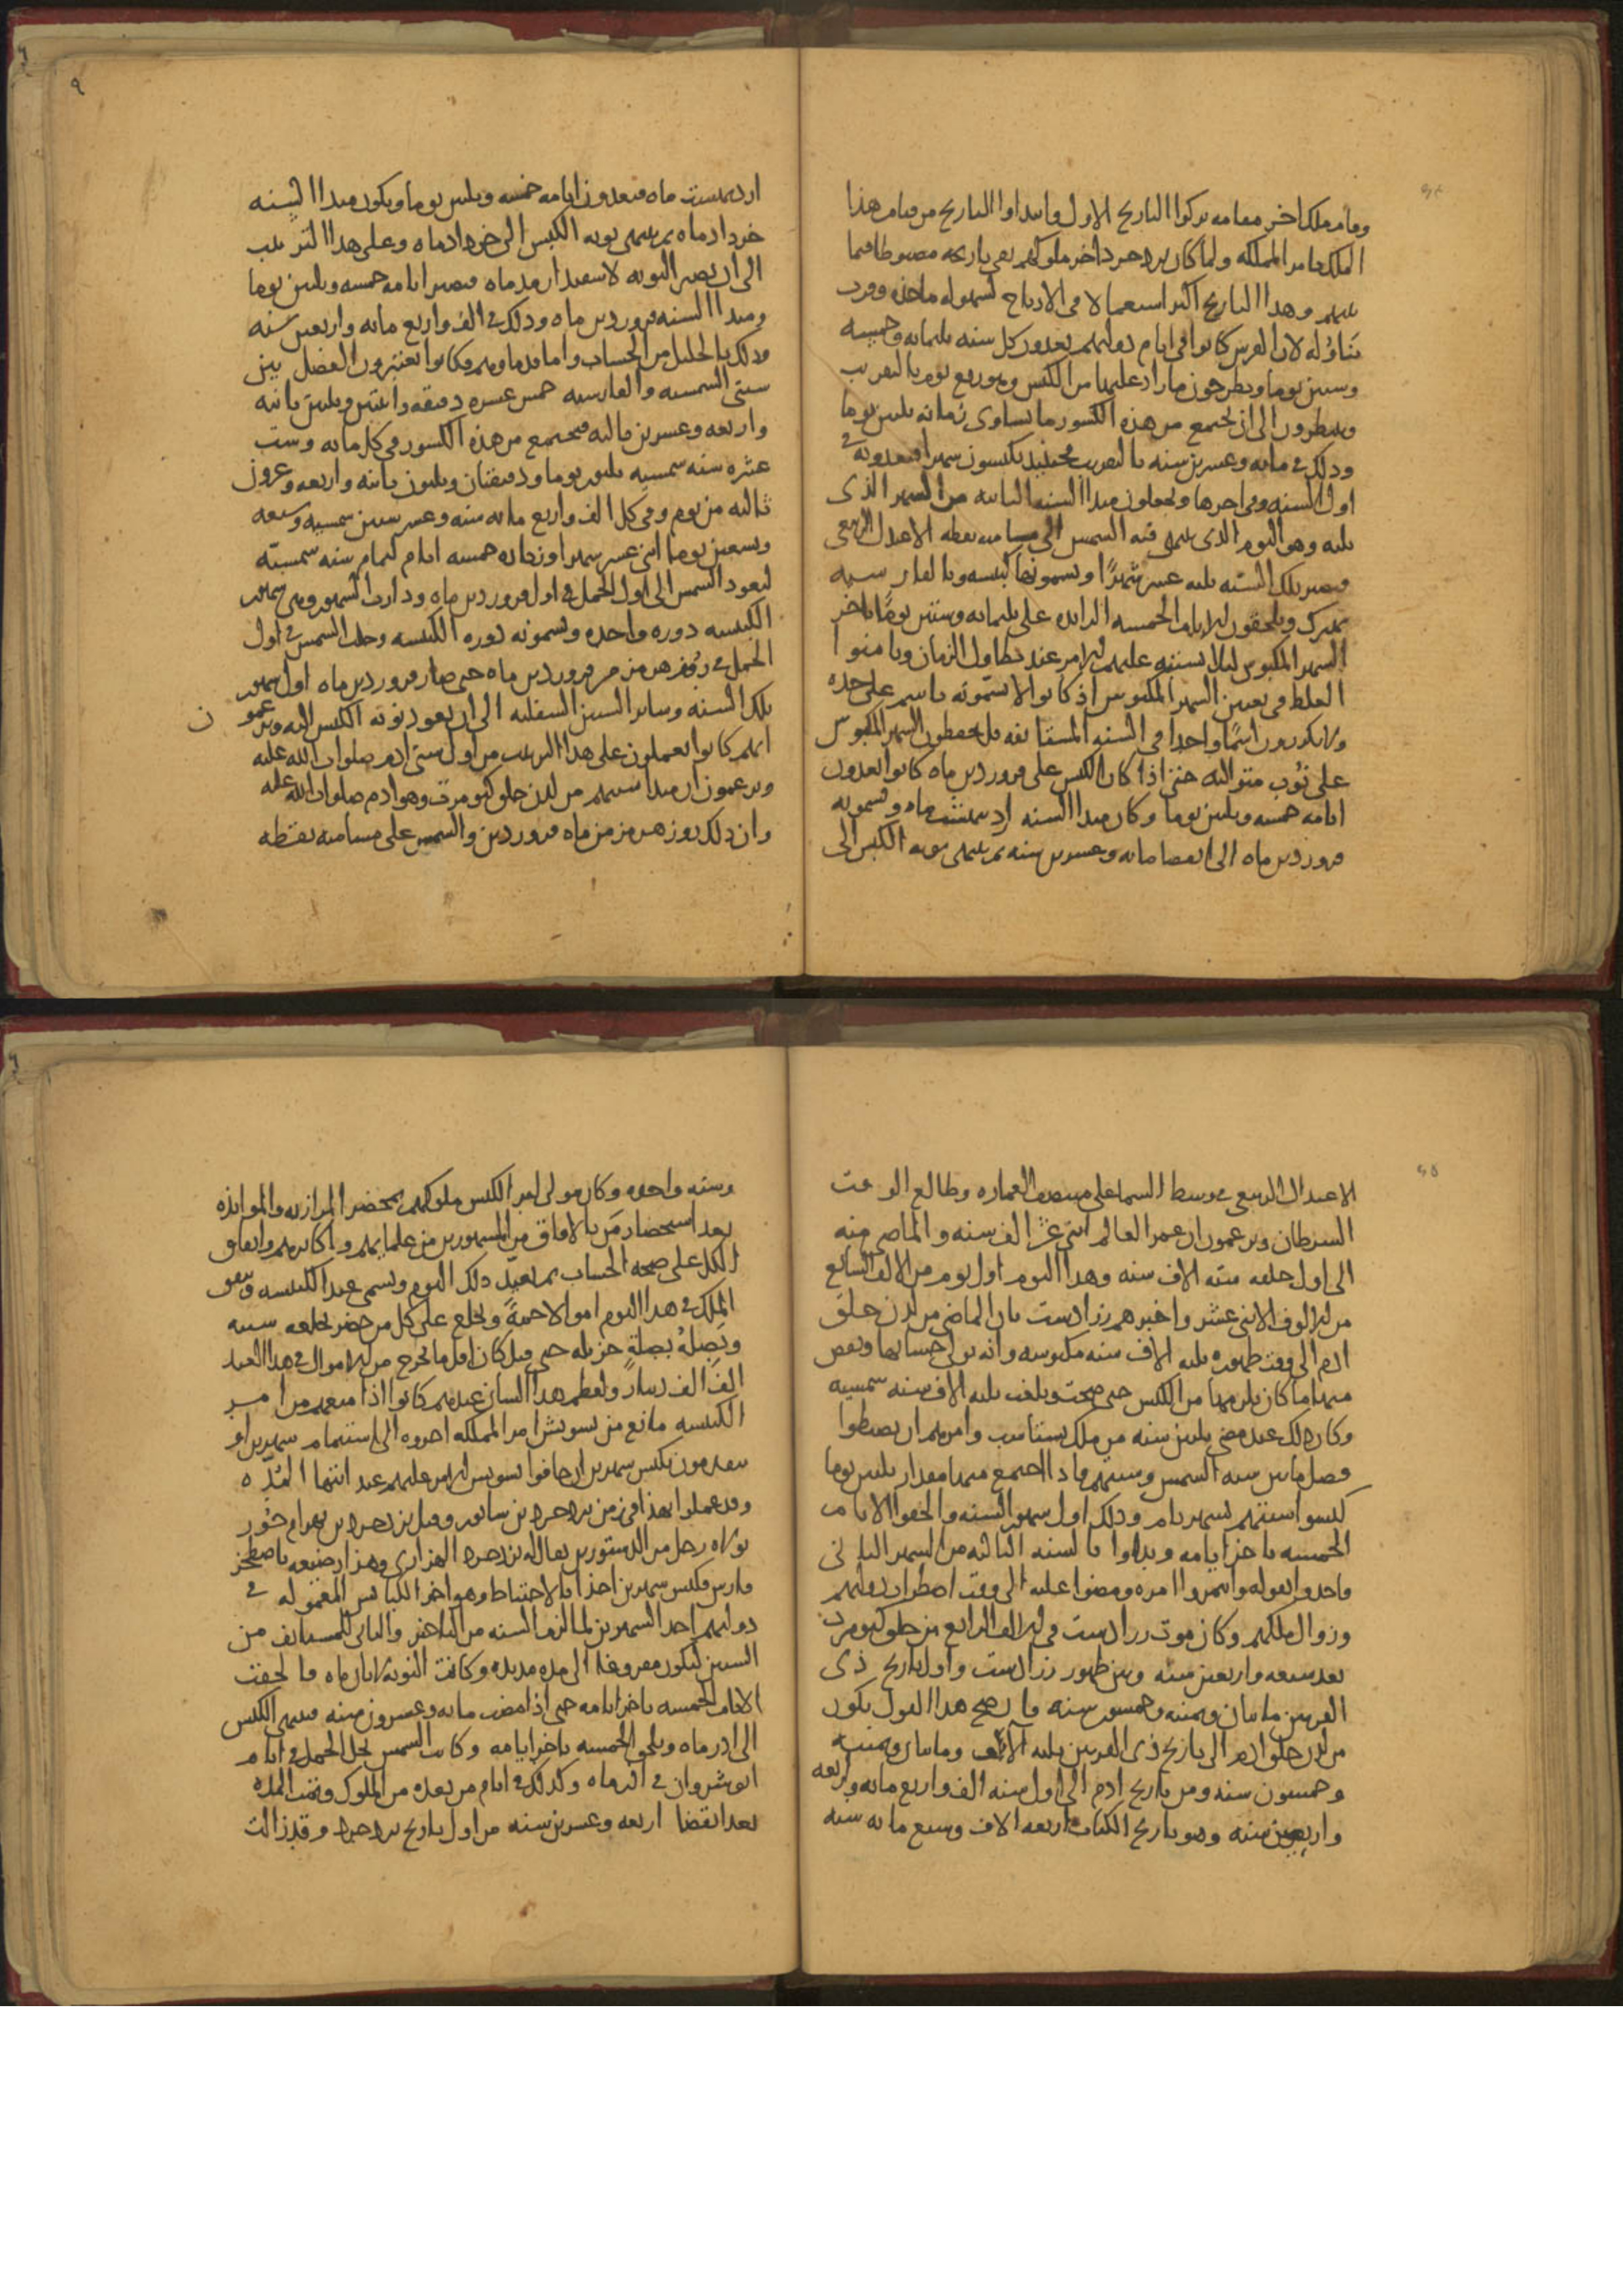 وقام ملك اخر مقامه تركوا التاريخ الاول وابتداوا التاريخ من قيام هذا
الملك بامر المملكة ولما كان يزدجرد اخر ملوكهم بقى تاريخه مضبوطا فيما
بينهم وهذا التاريخ اكثر استعمالا فى الازياج لسهولة ماخذه وقرب
تناوله لان الفرس كانوا فى ايام دولتهم يعدون كل سنه ثلثمايه وخمسه
وستين يوما ويطرحون ما زاد عليها من الكسر وهو ربع يوم بالتقريب
وينتظرون الى ان يجتمع من هذه الكسور ما يساوى زمانه ثلثين يوما
وذلك فى مايه وعشرين سنه بالتقريب فحينيذ يكبسون شهرا فيعدونه فى
اول السنه وفى اخرها ويجعلون مبدا السنه الثانيه من الشهر الذى
يليه وهو اليوم الذى ينتهى فيه الشمس الى مسامته نقطه الاعتدال الربيعى
فيصير تلك السنه ثلثه عشر شهرًا ويسمونها كبيسه وبالفارسيه
بهيزك ويلحقون الايام الخمسه الزايده على ثلثمايه وستين يومًا باخر
الشهر المكبوس ليلا يشتبه عليهم الامر عند تطاول الزمان ويامنوا
الغلط فى تعيين الشهر المكبوس اذ كانوا لا يسمونه باسم على حده
ولا يكررون اسمًا واحدا فى السنه المستانفه بل يحفظون الشهر المكبوس
على نُوَب متواليه حتى اذا كان الكبس على فروردين ماه كانوا يعدون
ايامه خمسه وثلثين يوما وكان مبدا السنه ارديبهشت ماه ويسمونه
فروردين ماه الى انقضا مايه وعشرين سنه ثم ينتهى نوبه الكبس الى
ارديبهشت ماه فيعدون ايامه خمسه وثلثين يوما ويكون مبدا السنه
خرداد ماه ثم ينتهى نوبه الكبس الى خرداد ماه وعلى هذا الترتيب
الى ان يصير النوبه لاسفندارمذ ماه فيصير ايامه خمسه وثلثين يوما
ومبدا السنه فروردين ماه وذلك فى الف واربع مايه واربعين سنه
وذلك بالجليل من الحساب واما قدماوهم فكانوا يعتبرون الفضل بين
سنتى الشمسيه والفارسيه خمس عشره دقيقه واثنتين وثلثين ثانيه
واربعه وعشرين ثالثه فيجتمع من هذه الكسور فى كل مايه وست
عشره سنه شمسيه ثلثون يوما ودقيقتان وثلثون ثانيه واربعه وعرون
ثالثه من يوم وفى كل الف واربع مايه سنه وعشر سنين شمسيه وسبعه
وتسعين يوما اثنى عشر شهرا وزياده خمسه ايام لتمام سنه شمسيّه
ليعود الشمس الى اول الحمل فى اول فروردين ماه ودارت الشهور وهى شهور
الكبيسه دوره واحده ويسمونه دوره الكبيسه وحلت الشمس فى اول
الحمل فى روز هرمز من فروردين ماه حتى صار فروردين ماه اول شهور
تلك السنه وساير السنين المستقبله الى ان يعود نوبه الكبس اليه ويزعمون
انهم كانوا يعملون على هذا الترتيب من اول سنى ادم صلوات الله عليه
ويزعمون ان مبدا سنيهم من لدن خلق كيومرث وهو ادم صلوات الله عليه
وان ذلك روز هرمز من ماه فروردين والشمس على مسامته نقطه
الاعتدال الربيعى فى وسط السما على منتصف العماره وطالع الوقت
السرطان ويزعمون ان عمر العالم اثنى عشر الف سنه والماضى منه
الى اول خلقه سته الاف سنه وهذا اليوم اول يوم من الالف السابع
من الالوف الاثنى عشر واخبرهم زرادشت بان الماضى من لدن خلق
ادم الى وقت ظهوره ثلثه الاف سنه مكبوسه وانه تولى حسابها ونقص
منها ما كان يلزمها من الكبس حتى صحت وبلغت ثلثه الاف سنه شمسيه
وكان ذلك عند مضى ثلثين سنه من ملك يستاسب وامرهم ان يضبطوا
فصل ما بين سنه الشمس وسنتهم فاذا اجتمع منها مقدار ثلثين يوما
كبسوا سنتهم بشهر تام وذلك اول شهور السنه والحقوا الايام
الخمسه باخر ايامه وبداوا بالسنه الثانيه من الشهر الثانى
فاخذوا بقوله وايتمروا امره ومضوا عليه الى وقت اضطراب دولتهم
وزوال ملكهم وكان موت زرادشت فى الالف الرابع من خلق كيومرث
بعد سبعه واربعين سنه وبين ظهور زرادشت واول تاريخ ذى
القرنين مايتان وثمنيه وخمسون سنه فان صح هذا القول يكون
من لدن خلق ادم الى تاريخ ذى القرنين ثلثه آلاف ومايتان وثمنيه
وخمسون سنه ومن تاريخ ادم الى اول سنه الف واربع مايه واربعه
واربعين سنه وهو تاريخ الكتاب اربعه الاف وسبع مايه سنه
وسته واحده وكان مولى امر الكبس ملوكهم بمحضر المرازبه والموابذه
بعد استحضار من بالافاق من المشهورين من علمايهم واكابرهم واتفاق
الكل على صحه الحساب ثم تعيّن ذلك اليوم ويسمى عيد الكبيسه وينفق
الملك فى هذا اليوم اموالا جمّةً ويخلع على كل من حضر بخلعه سنيه
ويَصِلهُ بصِلةٍ جزيله حتى قيل كان اقل ما يخرج من الاموال فى هذا العيد
الف الف دينار ولعظم هذا الشان عندهم كانوا اذا منعهم من امر
الكبيسه مانع من تشويش امر المملكه اخروه الى استتمام شهرين او
يتقدمون بكبس شهرين ان خافوا تشويش الامر عليهم عند انتها المُدّه
وقد عملوا بهذا فى زمن يزدجرد بن سابور وقيل يزدجرد بن بهرام جور
تولاه رجل من الدستورين يقال له يزدجرد الهزارى وهزار ضيعه باصطخر
فارس فكبس شهرين اخذا بالاحتياط وهو اخر الكبايس المعموله فى
دولتهم احد الشهرين لما لزم السنه من التاخير والثانى للمستانف من
السنين ليكون مفروغا الى مده مديده وكانت النوبه لابان ماه فالحقت
الايام الخمسه باخر ايامه حتى اذا مضت مايه وعشرون سنه فينتهى الكبس
الى اذر ماه ويلحق الخمسه باخر ايامه وكانت الشمس تحل الحمل فى ايام
انوشروان فى اذر ماه وكذلك فى ايام من بعده من الملوك وتمت المده
بعد انقضا اربعه وعشرين سنه من اول تاريخ يزدجرد وقد زالت